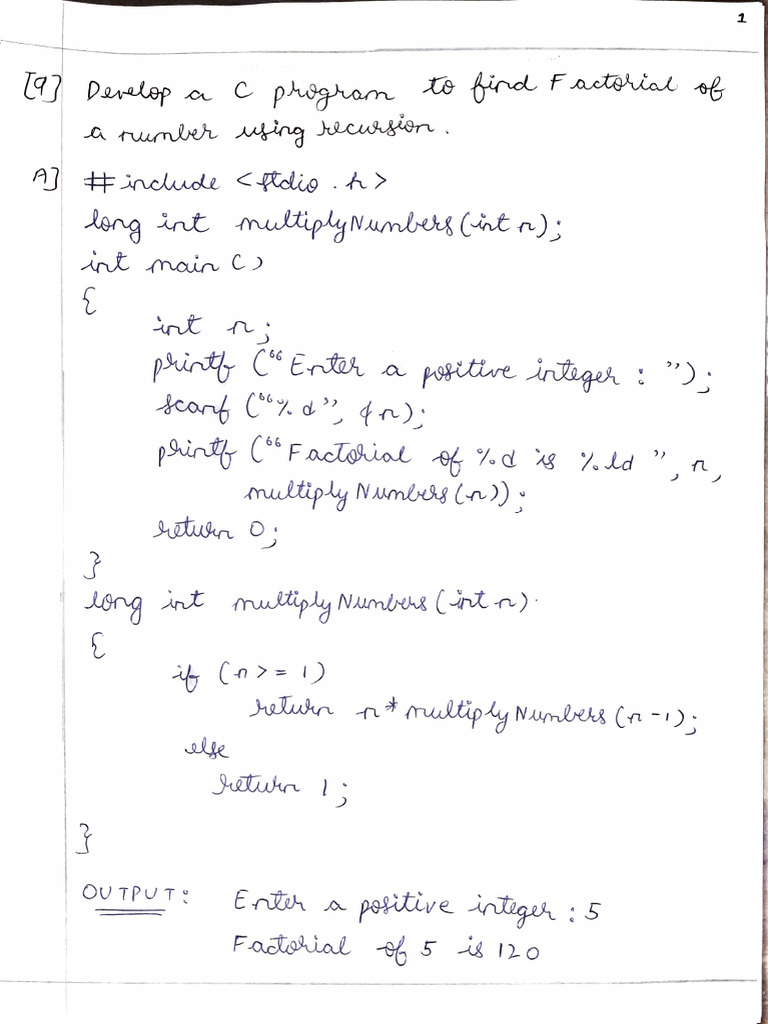 1
[9] Develop a C program to find Factorial of
a number using recursion.
A] #include <stdio.h>
long int multiplyNumbers(int n);
int main ()
{
int n;
printf (“Enter a positive integer : ”);
scanf (“%d”, &n);
printf (“Factorial of %d is %ld ”, n,
multiplyNumbers(n));
return 0;
}
long int multiplyNumbers(int n)
{
if (n >= 1)
return n*multiplyNumbers(n-1);
else
return 1;
}
OUTPUT: Enter a positive integer : 5
Factorial of 5 is 120